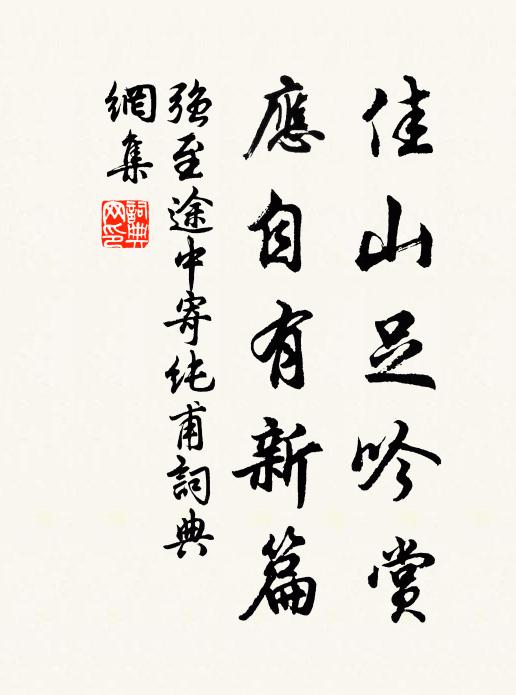 佳山足吟賞
應自有新篇
强至途中寄純甫詞典
網集
詞典網印